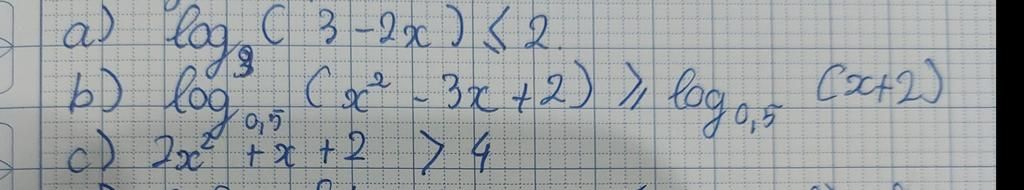 a) log₃ (3 - 2x) ≤ 2.
b) log₀,₅ (x² - 3x + 2) ≥ log₀,₅ (x+2)
c) 2x² + x + 2 > 4